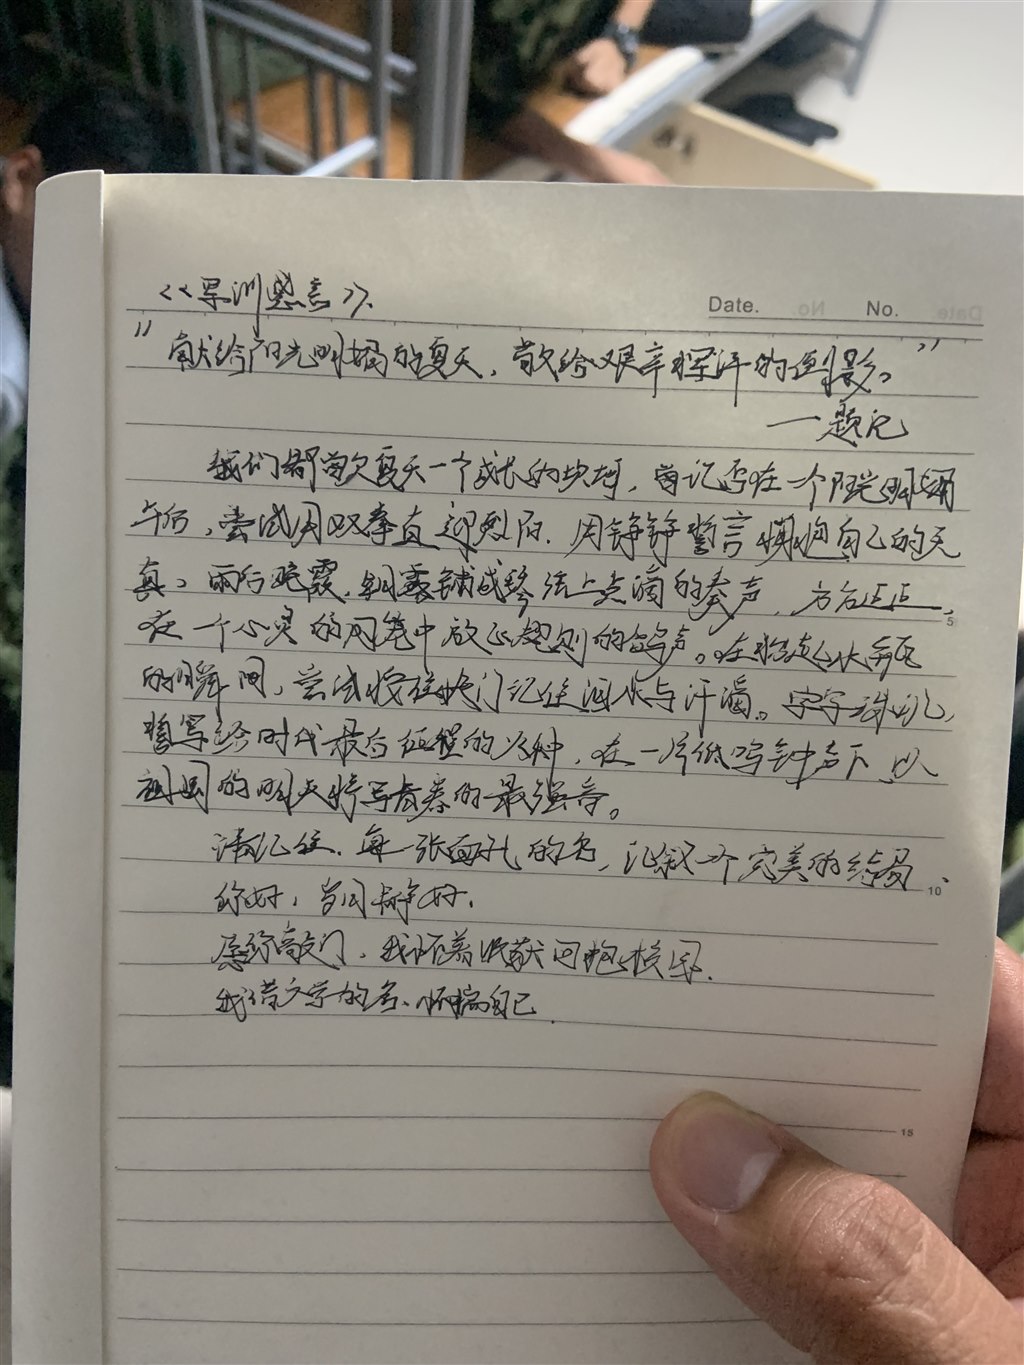 《军训感言》.
Date. No.
"献给阳光明媚的夏天，献给艰辛挥汗的倒影。"
—题记
我们都曾欠夏天一个成长的拱河，曾记否在一个阳光明媚
午后，尝试用双拳直迎烈阳.用铮铮誓言 自己的天
真。雨后晚霞.朝露铺成琴弦上点滴的奏声，方方正正
在一个心灵的 中放正规则的 声。在
的瞬间，尝试按住快门记住泪水与汗滴。字字
誓写给时代最后征程的火种，在一片低鸣钟声下，以
祖国的明天抒写青春的最强音。
请记住.每一张面孔的名，记叙一个完美的结局.
你好，岁月静好.
愿你敲门.我怀着 回抱校园.
我借文字的名、 自己.
5
10
15